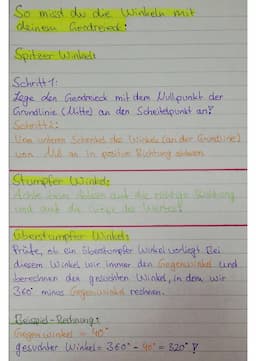 So misst du die Winkeln mit
deinem Geodreieck:
Spitzer Winkel:
Schritt 1:
Lege den Geodreieck mit dem Nullpunkt der
Grundlinie (Mitte) an den Scheitelpunkt an!
Schritt 2:
Vom unteren Schenkel des Winkels (an der Grundlinie)
von Null an in positive Richtung
Stumpfer Winkel:
Achte beim auf die richtige
und auf die des Wertes!
Überstumpfer Winkel:
Prüfe, ob ein überstumpfer Winkel vorliegt. Bei
diesem Winkel wir immer den Gegenwinkel und
berechnen den gesuchten Winkel, in dem wir
360° minus Gegenwinkel rechnen.
Beispiel-Rechnung:
Gegenwinkel = 40°
gesuchter Winkel = 360° - 40° = 320°